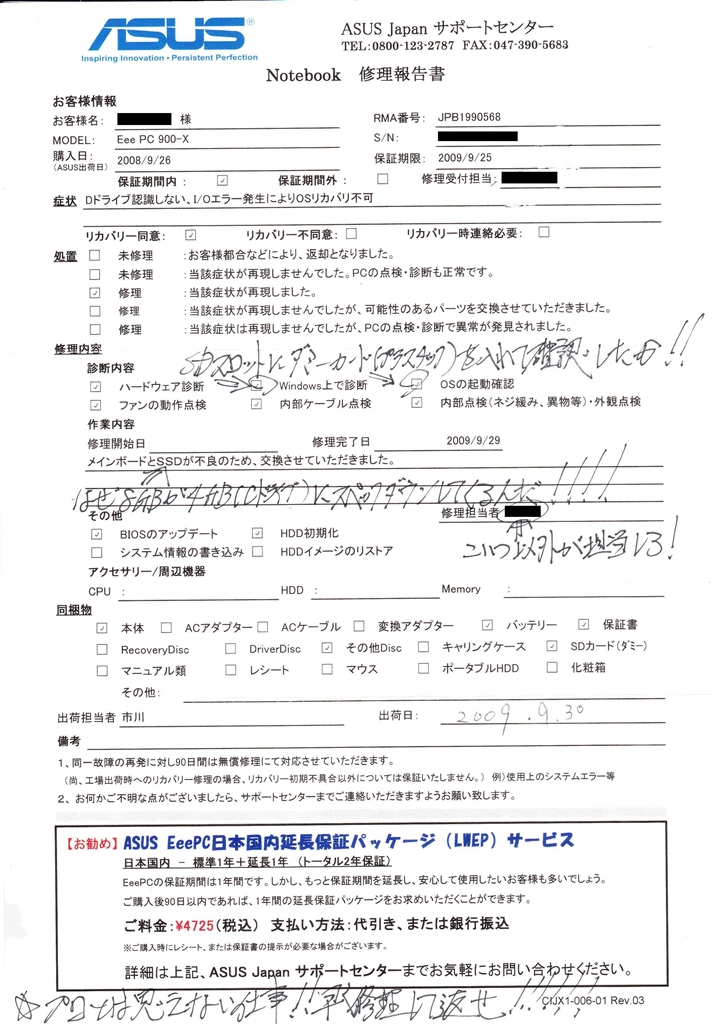 ASUS®
Inspiring Innovation • Persistent Perfection
ASUS Japan サポートセンター
TEL:0800-123-2787 FAX:047-390-5683
Notebook 修理報告書
お客様情報
お客様名: 様 RMA番号: JPB1990568
MODEL: Eee PC 900-X S/N:
購入日: 2008/9/26 保証期限: 2009/9/25
(ASUS出荷日)
保証期間内 : ☑ 保証期間外 : □ 修理受付担当:
症状 Dドライブ認識しない、I/Oエラー発生によりOSリカバリ不可
リカバリー同意: ☑ リカバリー不同意: □ リカバリー時連絡必要: □
処置 □ 未修理 :お客様都合などにより、返却となりました。
□ 未修理 :当該症状が再現しませんでした。PCの点検・診断も正常です。
☑ 修理 :当該症状が再現しました。
□ 修理 :当該症状が再現しませんでしたが、可能性のあるパーツを交換させていただきました。
□ 修理 :当該症状は再現しませんでしたが、PCの点検・診断で異常が発見されました。
修理内容
SDスロットにダミーカード(プラスチック)を入れて確認したか!!
診断内容
☑ ハードウェア診断 ☑ Windows上で診断 ☑ OSの起動確認
☑ ファンの動作点検 ☑ 内部ケーブル点検 ☑ 内部点検(ネジ緩み、異物等)・外観点検
作業内容
修理開始日 修理完了日 2009/9/29
メインボードとSSDが不良のため、交換させていただきました。
なぜ8GBが4GB(Cドライブ)にスペックダウンしてくるんだ!!!!!
その他 修理担当者
☑ BIOSのアップデート ☑ HDD初期化
こいつ以外が担当しろ!
□ システム情報の書き込み □ HDDイメージのリストア
アクセサリー/周辺機器
CPU : HDD : Memory :
同梱物
☑ 本体 □ ACアダプター □ ACケーブル □ 変換アダプター ☑ バッテリー ☑ 保証書
□ RecoveryDisc □ DriverDisc ☑ その他Disc □ キャリングケース ☑ SDカード(ダミー)
□ マニュアル類 □ レシート □ マウス □ ポータブルHDD □ 化粧箱
その他:
出荷担当者 市川 出荷日: 2009.9.30
備考
1、同一故障の再発に対し90日間は無償修理にて対応させていただきます。
(尚、工場出荷時へのリカバリー修理の場合、リカバリー初期不具合以外については保証いたしません。) 例)使用上のシステムエラー等
2、お何かご不明な点がございましたら、サポートセンターまでご連絡いただきますようお願い致します。
【お勧め】ASUS EeePC日本国内延長保証パッケージ(LWEP)サービス
日本国内 - 標準1年+延長1年 (トータル2年保証)
EeePCの保証期間は1年間です。しかし、もっと保証期間を延長し、安心して使用したいお客様も多いでしょう。
ご購入後90日以内であれば、1年間の延長保証パッケージをお求めいただくことができます。
ご料金:¥4725(税込) 支払い方法:代引き、または銀行振込
※ご購入時にレシート、または保証書の提示が必要な場合がございます。
詳細は上記、ASUS Japan サポートセンターまでお気軽にお問い合わせください。
CIJX1-006-01 Rev.03
☆プロとは思えない仕事!! 修理して返せ!!!!!!